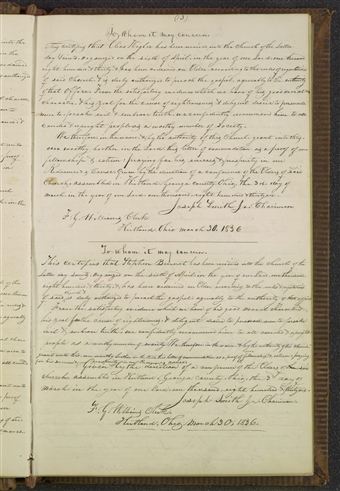 (13)
To Whom it may concern
This certifies that Elias Wight has been received into the Church of the Latter
day Saints, organized on the sixth of April, in the year of our Lord, one thousand
eight hundred & thirty & has been ordained an Elder according to the rules & regulations
of said Church, & is duly authorized to preach the gospel, agreeably to the authority
of that Office. From the satisfactory evidence which we have of his good moral
character & his zeal for the cause of righteousness, & diligent desire to persuade
men to forsake evil & embrace truth, we confidently recommend him to all
candid & upright people as a worthy member of Society.
We therefore, in the name & by the authority of this Church, grant unto this
our worthy brother in the Lord, this letter of commendation as a proof of our
fellowship & esteem: praying for his success & prosperity in our
Redeemer's Cause. Given by the direction of a conference of the Elders of said
Church assembled in Kirtland, Geauga County, Ohio, the 3rd day of
march in the year of our Lord one thousand eight hundred & thirty six.
Joseph Smith Jr. Chairman
F. G. Williams Clerk
Kirtland, Ohio March 30, 1836
To whom it may concern
This certifies that Stephen Bennett has been received into the Church of the
Latter day Saints, organized on the sixth of April in the year of our Lord, one thousand
eight hundred & thirty, & has been ordained an Elder according to the rules & regulations
of said, is duly authorized to preach the gospel agreeably to the authority of that office
From the satisfactory evidence which we have of his good moral character, &
his zeal for the cause of righteousness, & diligent desire to persuade men to forsake
evil & embrace truth, we confidently recommend him to all candid & upright
people as a worthy member of society. We therefore in the name & by the authority of this church
grant unto this our worthy brother in the Lord this letter of commendation as a proof of our fellowship & esteem, praying
for his success & prosperity in our Redeemer's cause.
Given by the direction of a conference of the Elders of said
church assembled in Kirtland, Geauga county, Ohio, the 3rd day of
march in the year of our Lord one thousand eight hundred & thirty six.
Joseph Smith Jr. Chairman
F. G. Williams Clerk
Kirtland, Ohio, March 30, 1836.